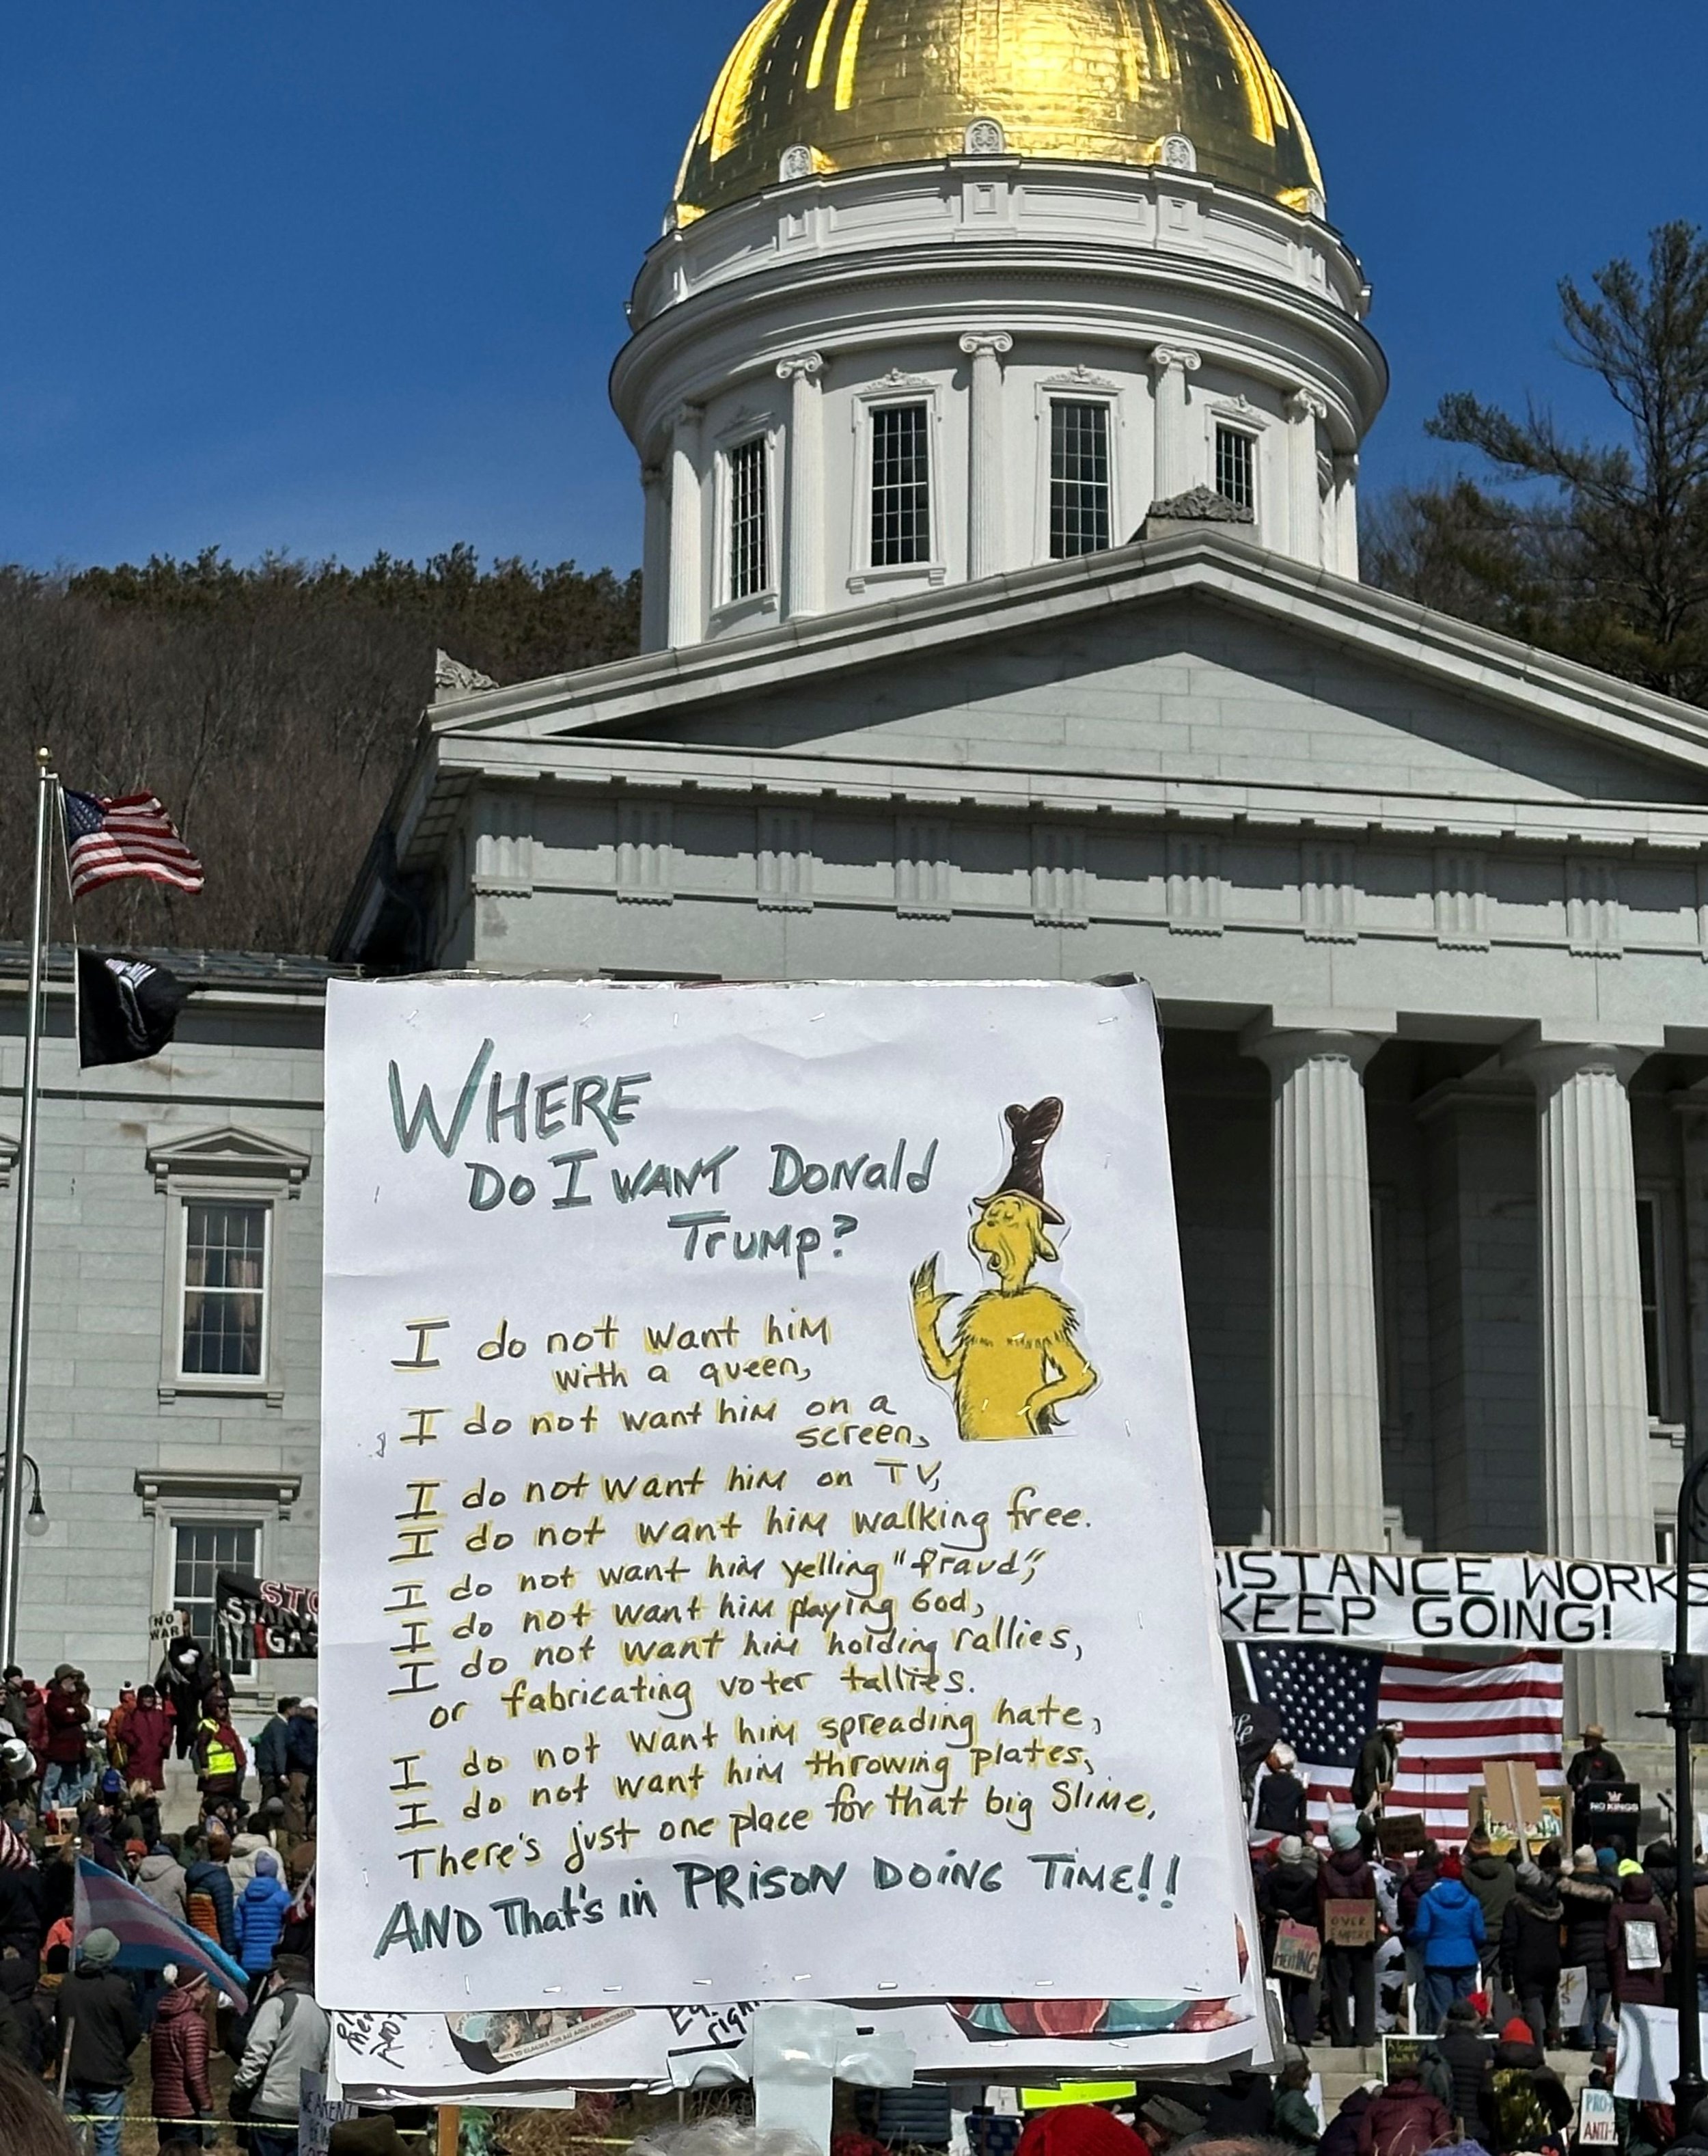 WHERE
DO I WANT Donald
Trump?
I do not want him
with a queen,
I do not want him on a
screen,
I do not want him on TV,
I do not want him walking free.
I do not want him yelling "fraud",
I do not want him playing God,
I do not want him holding rallies,
or fabricating voter tallies.
I do not want him spreading hate,
I do not want him throwing plates,
There's just one place for that big Slime,
AND That's in PRISON DOING TIME!!
SISTANCE WORKS
KEEP GOING!
NO
WAR
STO
NO KINGS
OVER
PRO-
ANTI-